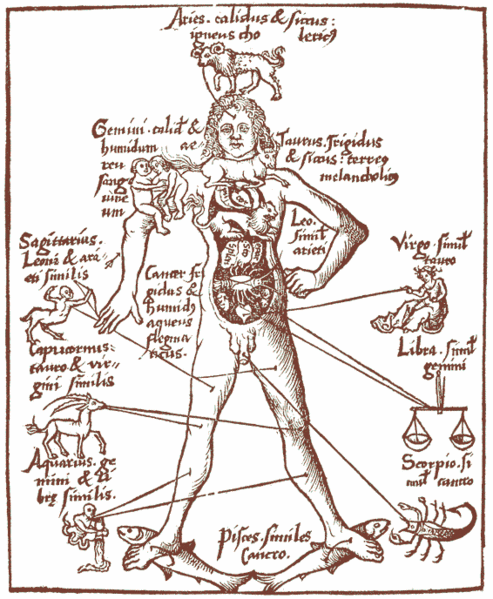 Aries. calidus & siccus:
igneus cho
leric9
Gemini. calid9 &
humidum
ae
reu
sang
uine
um
Taurus. frigidus
& siccus: terreg
melancholig
Leo.
simil
arieti
Sagittarius.
Leoni & arie
eti similis
Cancer fr
igidus &
humid9
aqueus
flegma
ticus.
Virgo. simil
tauro
Capricornus
tauro & vir-
gini similis
Libra. simil
gemini
Aquarius. ge
mini & li
brę similis.
Scorpio. si
mil cancro
Pisces. similes
Cancro.